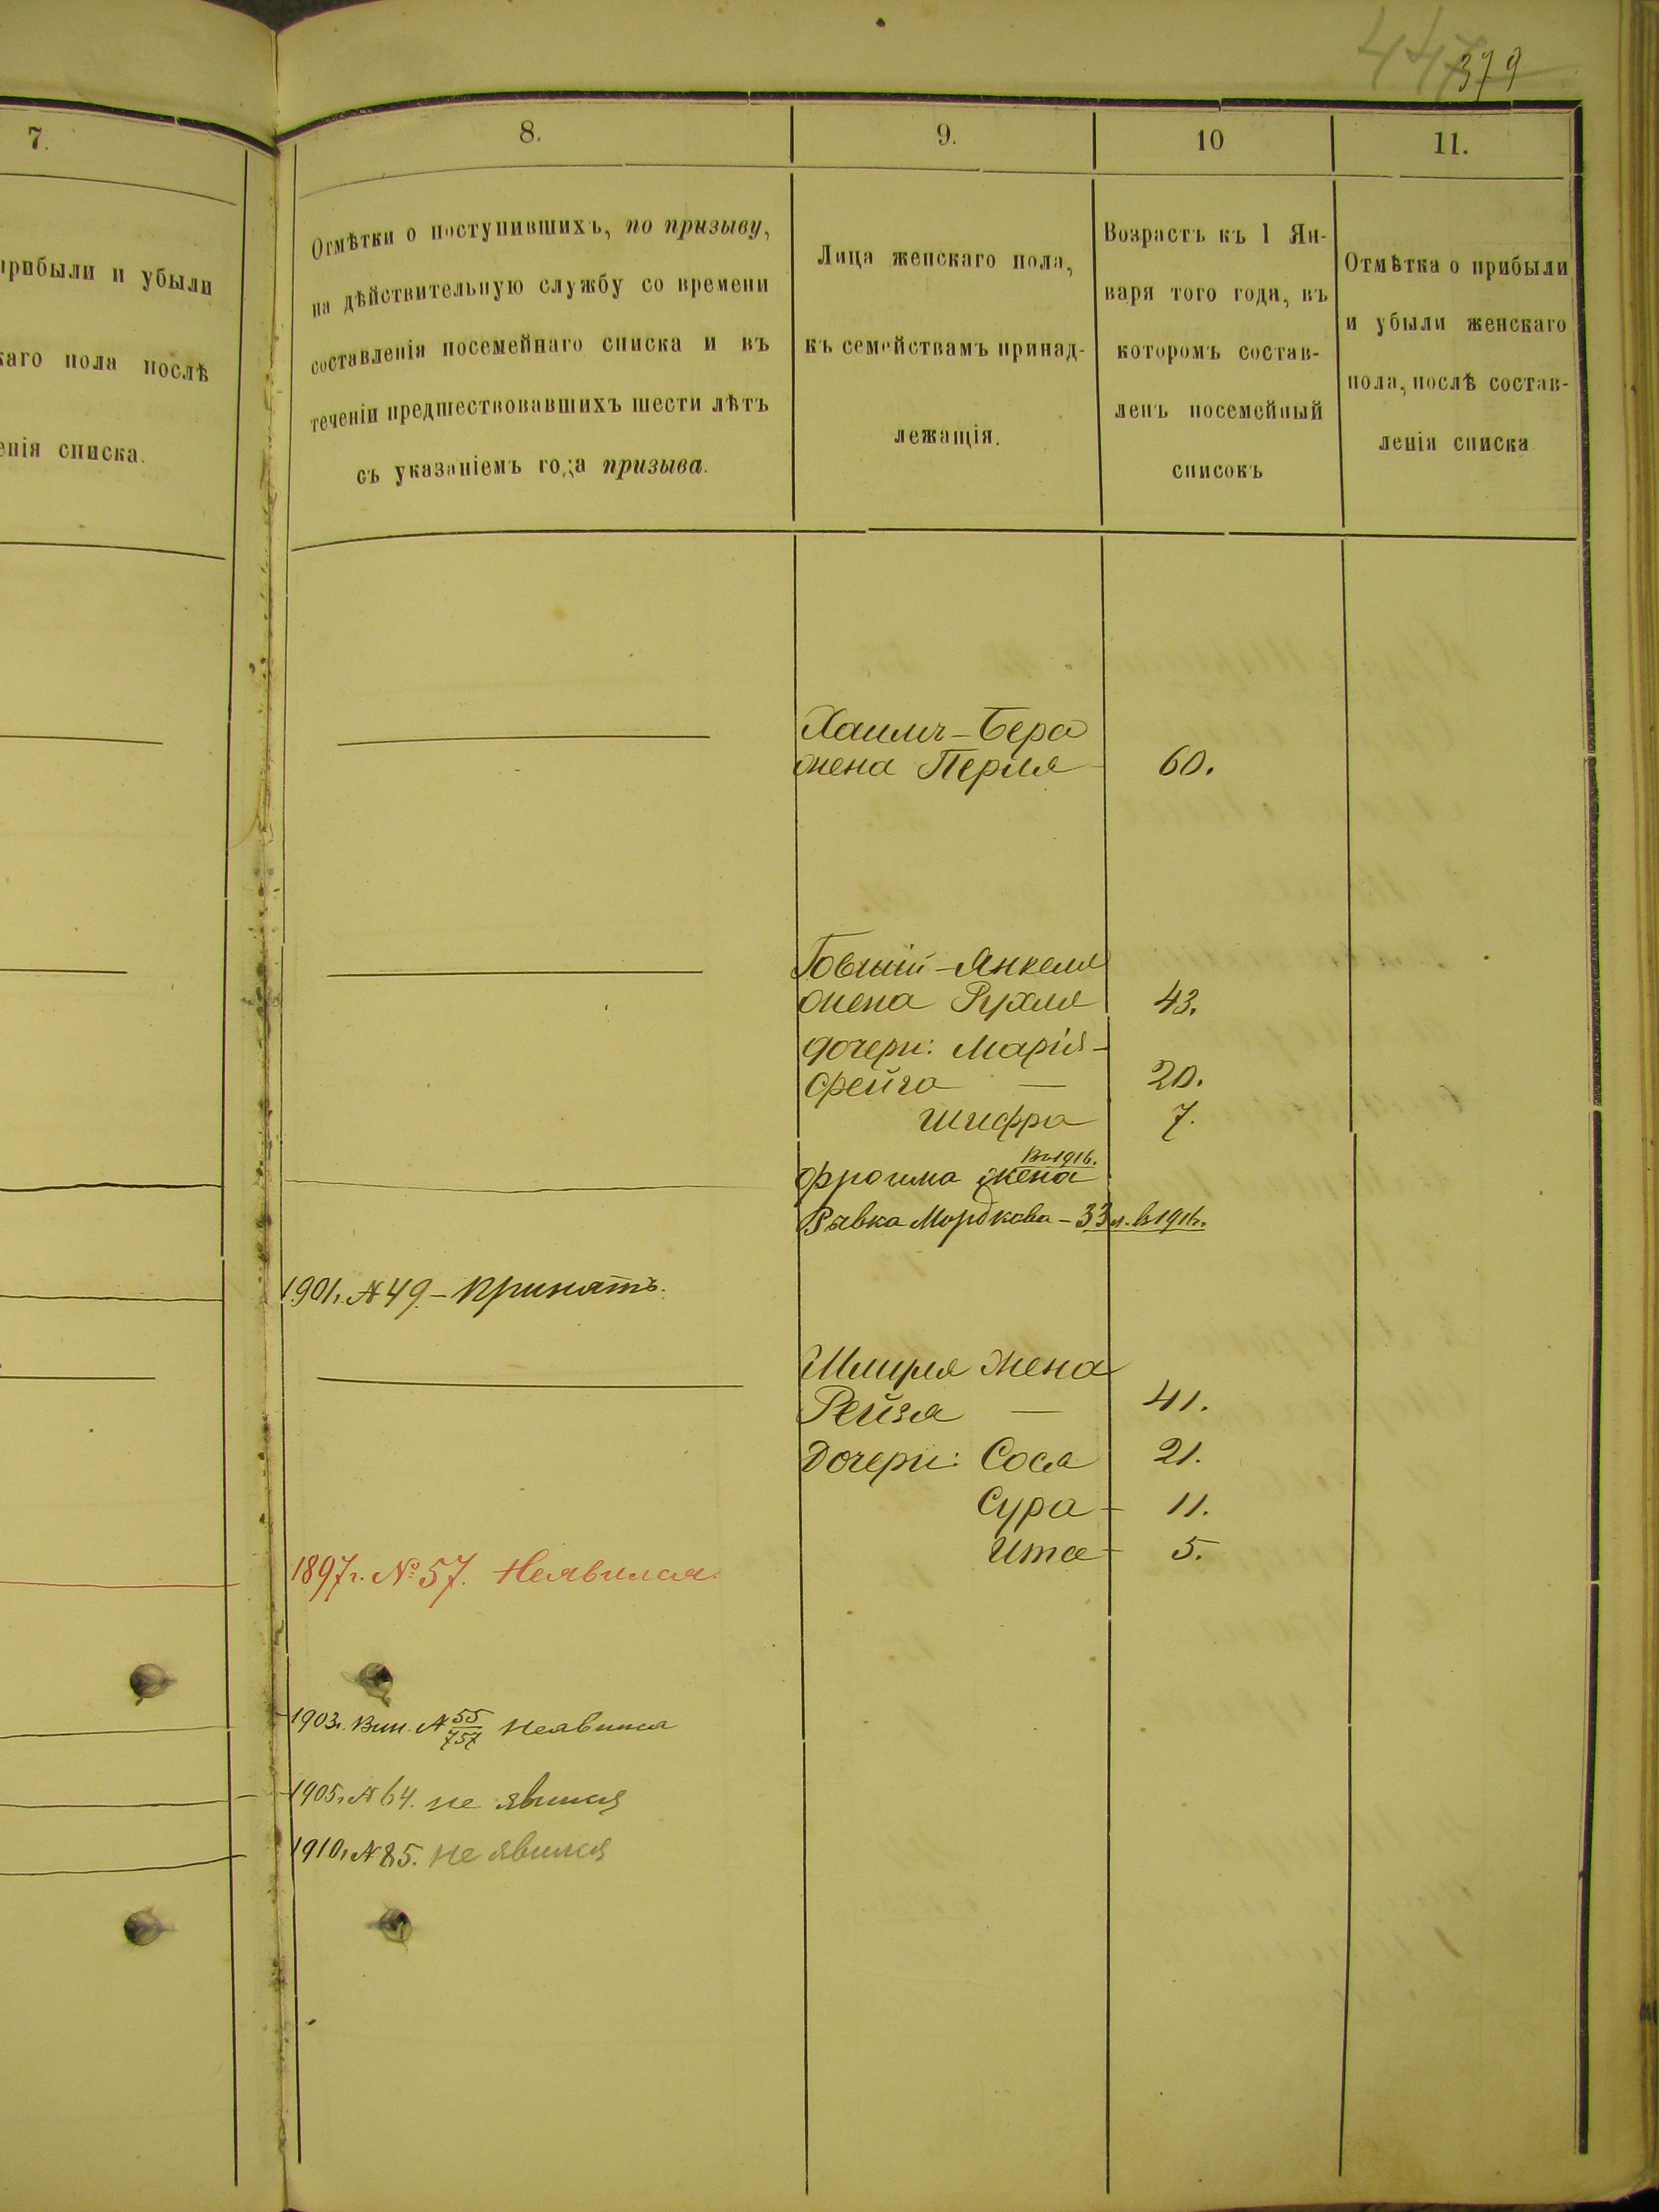 379
7.
8.
9.
10
11.
прибыли и убыли
каго пола послѣ
енія списка.
Отмѣтки о поступившихъ, по призыву,
на дѣйствительную службу со времени
составленія посемейнаго списка и въ
теченіи предшествовавшихъ шести лѣтъ
съ указаніемъ года призыва.
Лица женскаго пола,
къ семействамъ принад-
лежащія.
Возрастъ къ 1 Ян-
варя того года, въ
которомъ состав-
ленъ посемейный
списокъ
Отмѣтка о прибыли
и убыли женскаго
пола, послѣ состав-
ленія списка
Хаимъ-Бера
жена Перля 60.
Янкеля
жена Рухля 43.
дочери: Марія-
Фейга — 20.
Шифра 7.
Въ 1916.
Фроима жена
Рывка Мордкова - 33 л. в 1916г.
1901г. № 49 - Принятъ.
Шмуля жена
Рейзя — 41.
Дочери: Сося 21.
Сура - 11.
Ита - 5.
1897г. № 57. Неявился.
1903г. № 55/757 Неявился
1905г. № 64. не явился
1910г. № 85. не явился